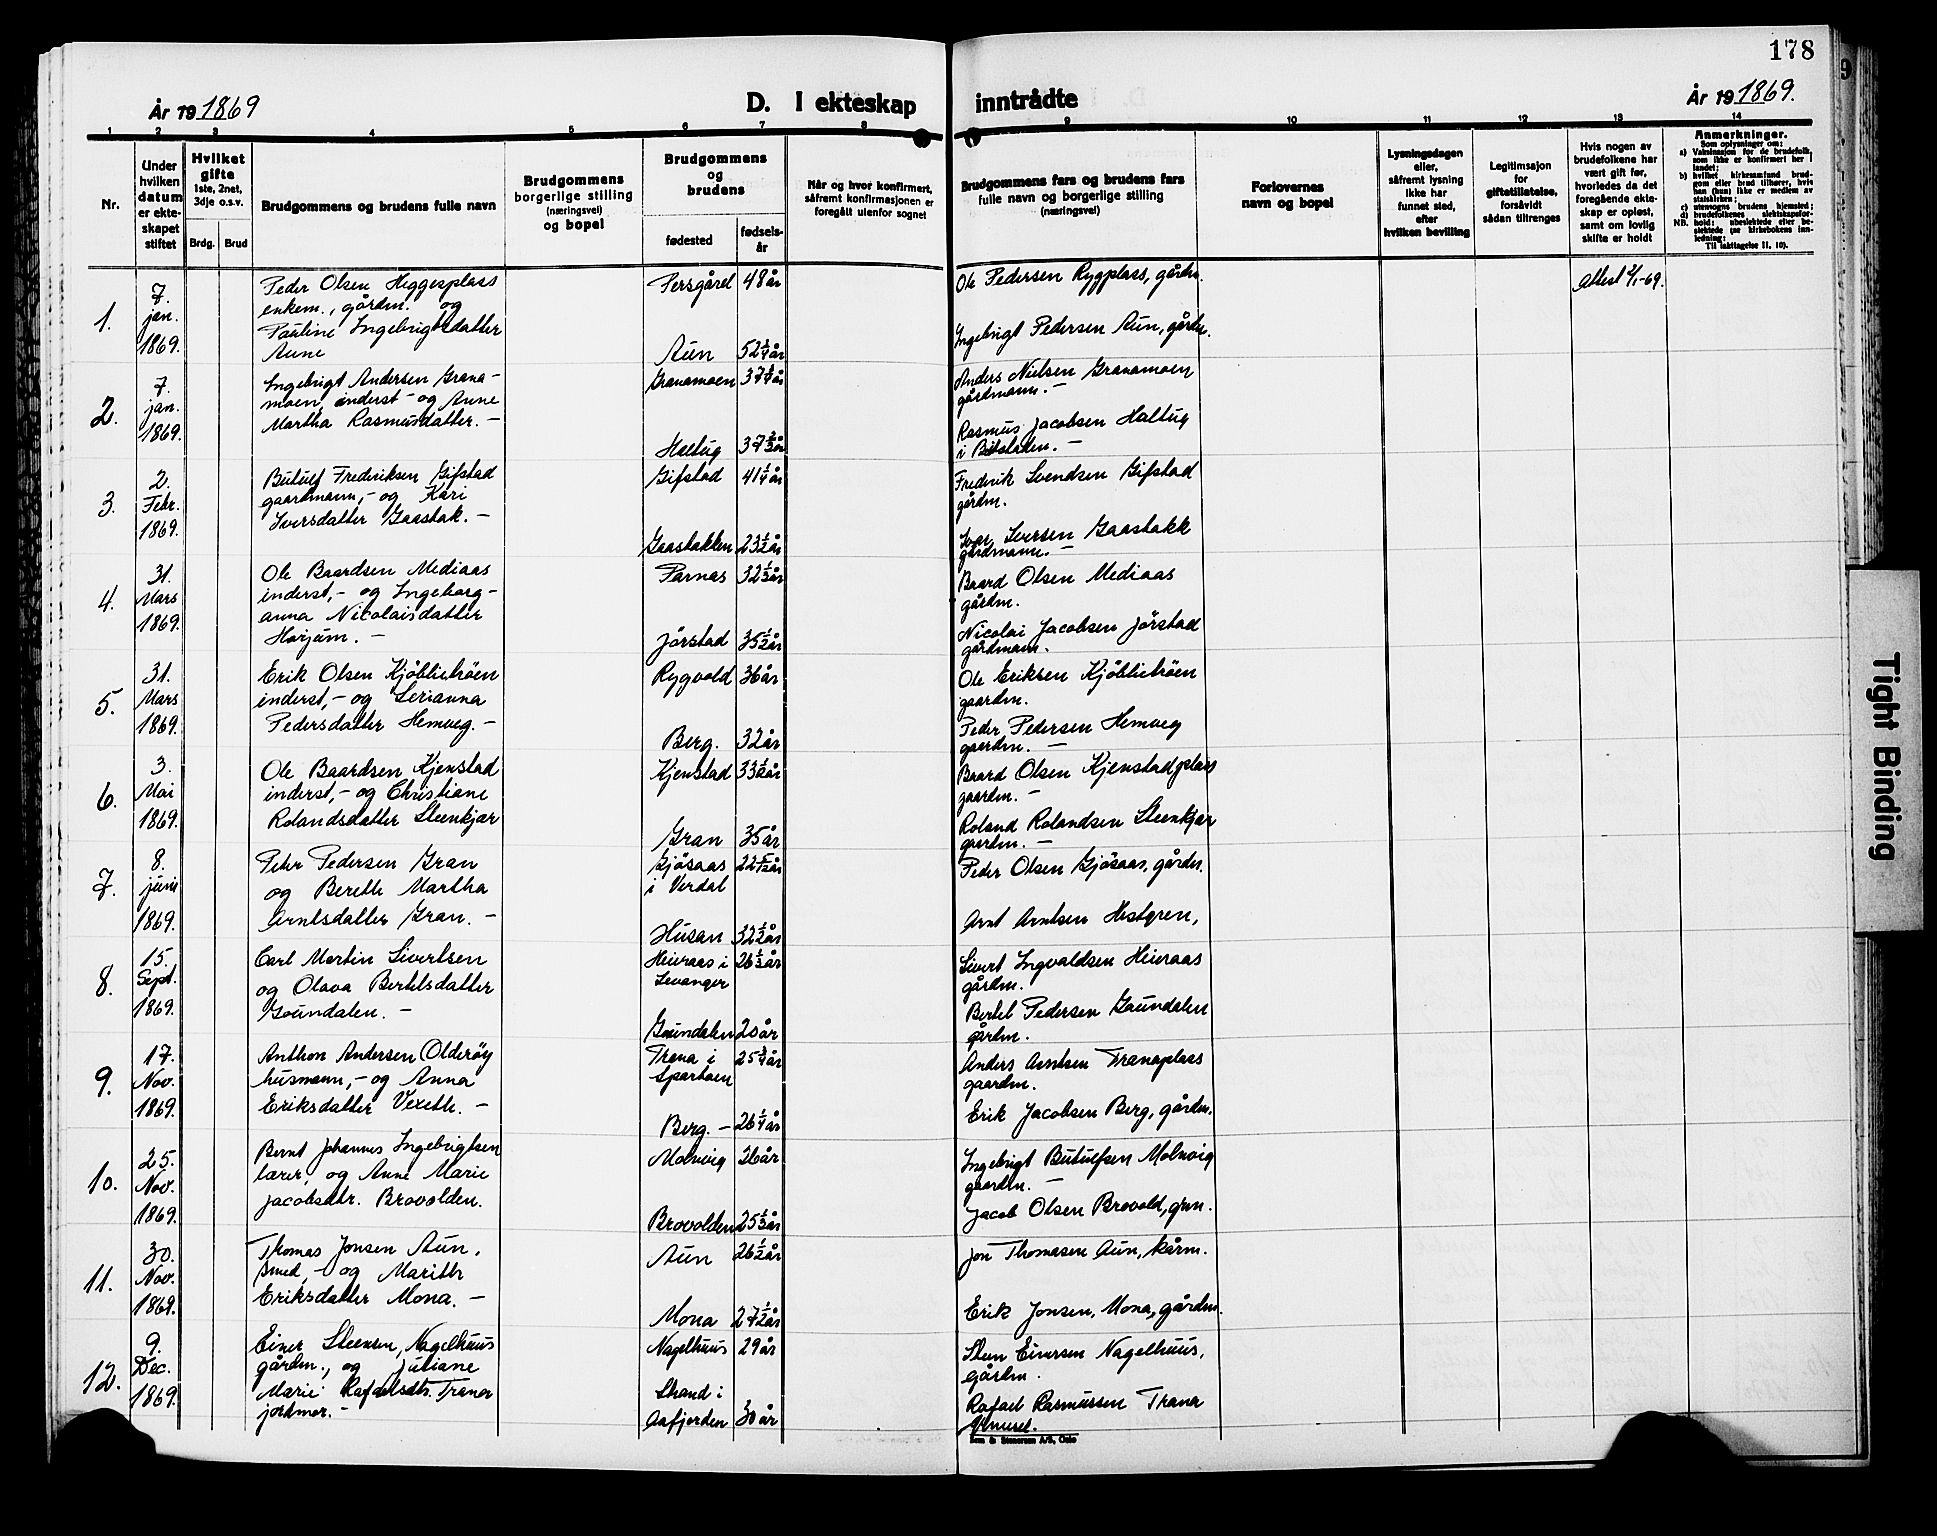 178
År 19 1869
D. I ekteskap inntrådte
År 19 1869.
1 2 3 4 5 6 7 8 9 10 11 12 13 14
Nr.
Under hvilken datum er ekteskapet stiftet
Hvilket gifte
1ste, 2net, 3dje o.s.v.
Brdg. Brud
Brudgommens og brudens fulle navn
Brudgommens borgerlige stilling (næringsvei) og bopel
Brudgommens og brudens
fødested fødselsår
Når og hvor konfirmert, såfremt konfirmasjonen er foregått utenfor sognet
Brudgommens fars og brudens fars fulle navn og borgerlige stilling (næringsvei)
Forlovernes navn og bopel
Lysningsdagen eller, såfremt lysning ikke har funnet sted, efter hvilken bevilling
Legitimasjon for giftetillatelse, forsåvidt sådan tiltrenges
Hvis nogen av brudefolkene har vært gift før, hvorledes da det foregående ekteskap er opløst, samt om lovlig skifte er holdt
Anmerkninger.
Som oplysninger om:
a) Vaksinasjon for de brudefolk, som ikke er konfirmert her i landet;
b) hvilket kirkesamfund brudgom eller brud tilhører, hvis han (hun) ikke er medlem av statskirken;
c) utensogns brudens hjemsted;
d) brudefolkenes slektskapsforhold: ubeslektede eller beslektede
NB. (se kirkebokens innledning: Til iakttagelse II, 10).
1. 7. jan. 1869.
Peder Olsen Heggesplass
enkem., gårdm. og
Pauline Ingebrigtsdatter
Aune
Persgård 48 år
Aun 52 1/4 år
Ole Pedersen Rygplass, gårdm.
Ingebrigt Pedersen Aun, gårdm.
Attest 2/1-69.
2. 7. jan. 1869.
Ingebrigt Andersen Grana-
moen, inderst - og Anne
Martha Rasmusdatter. -
Granamoen 37 1/4 år
Haltug 37 2/3 år
Anders Nielsen Granamoen
gårdmann. -
Rasmus Jacobsen Haltug
i Beitstaden. -
3. 2. Febr. 1869.
Butulf Frederiksen Gifstad
gaardmann, - og Kari
Iversdatter Gaastak. -
Gifstad 41 1/4 år
Gaastakken 23 1/2 år
Frederik Svendsen Gifstad
gårdm.
Ivar Iversen Gaastakk
gårdmann. -
4. 31. Mars 1869.
Ole Baardsen Mediaas
inderst, - og Ingeborg-
anna Nicolaisdatter
Horjum. -
Parnas 32 1/3 år
Jörstad 35 1/2 år
Baard Olsen Mediaas
gårdm.
Nicolai Jacobsen Jörstad
gårdmann.
5. 31. Mars 1869.
Erik Olsen Kjöblietröen
inderst, - og Serianna
Pedersdatter Hemveg. -
Rygvold 36 år
Berg. 32 år
Ole Eriksen Kjöblietröen
gaardm.
Peder Pedersen Hemveg
gaardm. -
6. 3. Mai 1869.
Ole Baardsen Kjenstad
inderst, - og Christiane
Rolandsdatter Steenkjær
Kjenstad 33 1/2 år
Gran 35 år
Baard Olsen Kjenstadplass
gaardm. -
Roland Rolandsen Steenkjær
gaardm. -
7. 8. juni 1869.
Peter Pedersen Gran
og Berette Martha
Arntsdatter Gran. -
Gjösaas
i Verdal 22 år
Husan 32 1/2 år
Peder Olsen Gjösaas, gårdm.
Arnt Arntsen Hestgren,
8. 15. Sept. 1869.
Carl Martin Sivertsen
og Olava Bertelsdatter
Gaundalen. -
Heieraas i
Levanger 26 1/3 år
Gaundalen 20 år
Sivert Ingvaldsen Heieraas
gårdm.
Bertel Pedersen Gaundalen
gårdm.
9. 17. Nov. 1869.
Anthon Andersen Olderöy
husmann, - og Anna
Eriksdatter Vexette. -
Trana i
Sparboen 25 3/4 år
Berg. - 26 1/4 år
Anders Arntsen Tranaplass
gaardm.
Erik Jacobsen Berg, gårdm.
10. 25. Nov. 1869.
Bernt Johannes Ingebrigtsen
lærer, og Anne Marie
Jacobsdtr. Brovolden.
Molnvig 26 år
Brovolden 25 1/3 år
Ingebrigt Butulfsen Molnvig
gaardm. -
Jacob Olsen Brovold, grm.
11. 30. Nov. 1869.
Thomas Jonsen Aun,
smed, - og Marith
Eriksdatter Mona. -
Aun 26 1/2 år
Mona 27 1/2 år
Jon Thomasen Aun, kårm.
Erik Jonsen, Mona, gårdm.
12. 9. Dec. 1869.
Einer Steensen, Nagelhuus
gårdm., og Juliane
Marie Rafaelsdtr. Trana
jordmor. -
Nagelhuus 29 år
Strand i
Aafjorden 30 år
Steen Einersen Nagelhuus,
gårdm.
Rafael Rasmussen Trana
Sem & Stenersen A/S, Oslo
Tight Binding